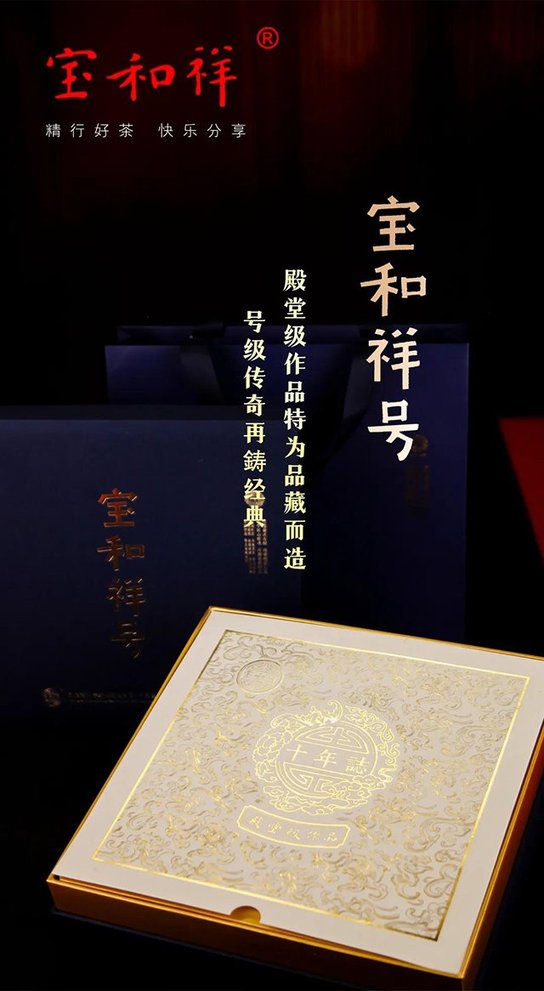 宝和祥®
精行好茶 快乐分享
宝和祥号
殿堂级作品特为品藏而造
号级传奇再鑄经典
宝和祥号
十年誌
殿堂级作品